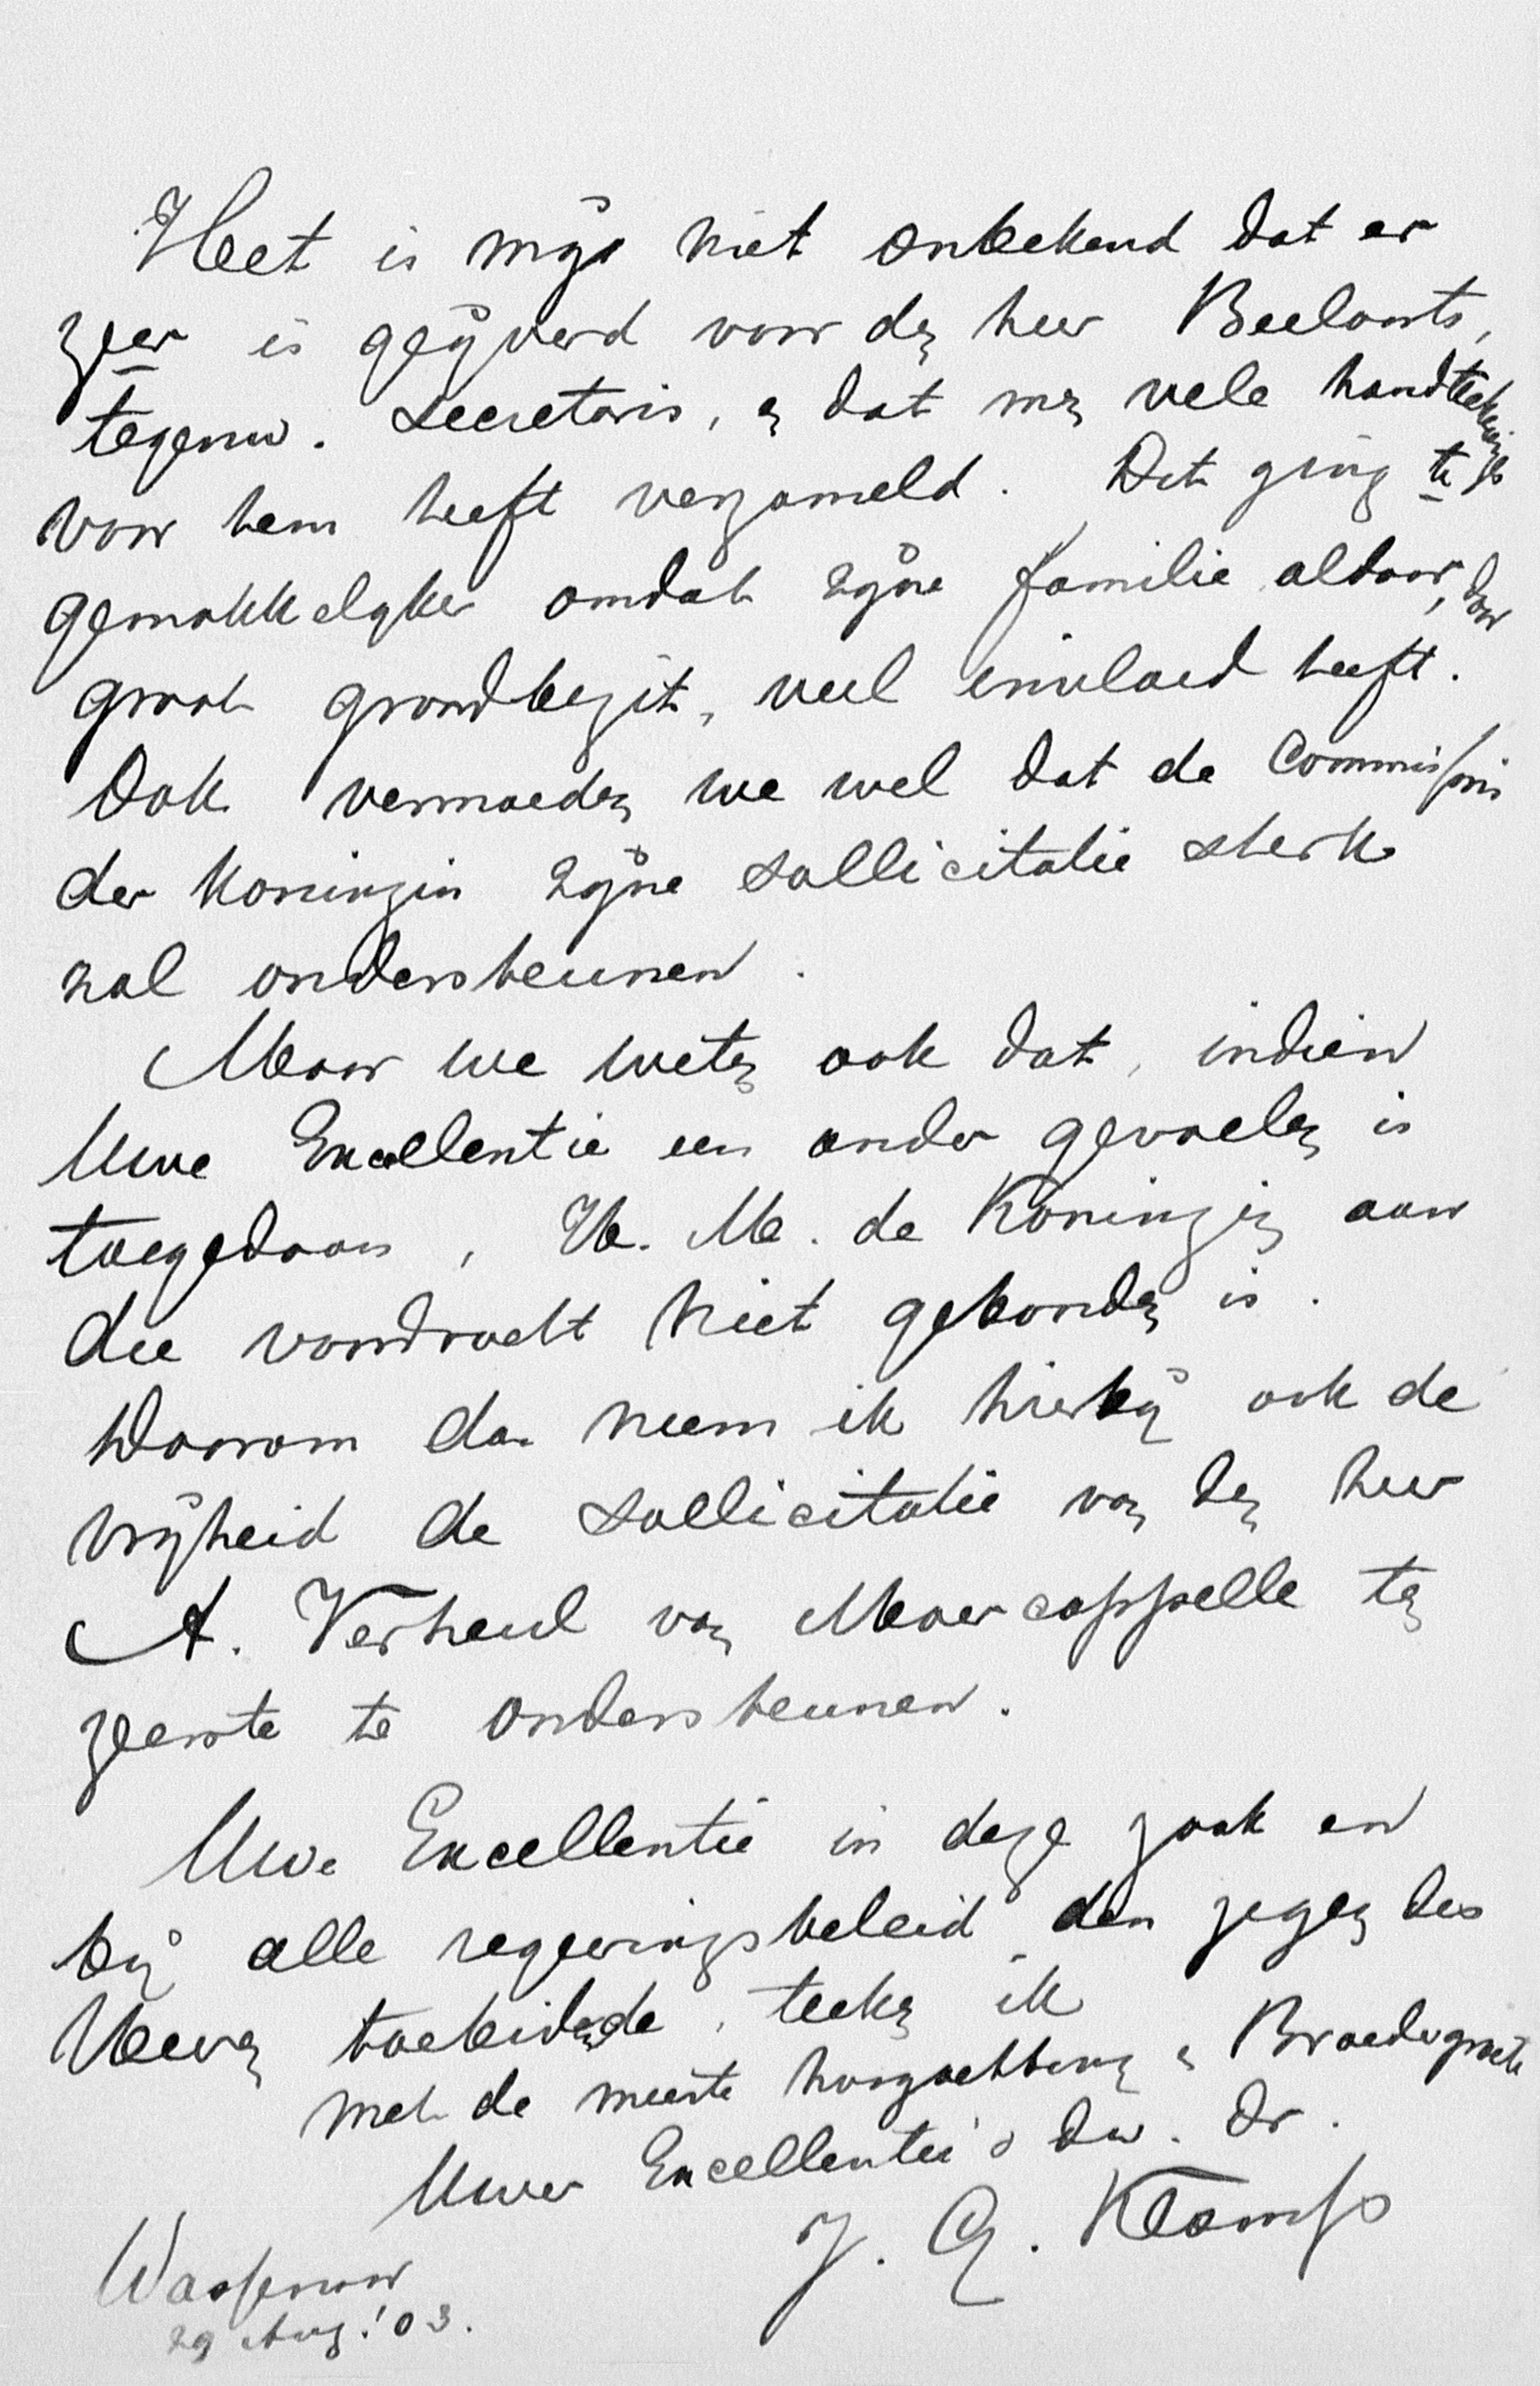 Het is mij niet onbekend dat er
zeer is geijverd voor den heer Beelaerts,
tegenw. Secretaris, en dat men vele handteekeningen
voor hem heeft verzameld. Dit ging te
gemakkelyker omdat zijne familie aldaar, door
groot grondbezit, veel invloed heeft.
Ook vermoeden we wel dat de Commissaris
der Koningin zijne sollicitatie sterk
zal ondersteunen.
Maar we weten ook dat, indien
Uwe Excellentie een ander gevoelen is
toegedaan, H. M. de Koningin aan
die voordracht niet gebonden is.
Daarom dan neem ik hierbij ook de
vrijheid de sollicitatie van den heer
A. Verheul van Moercappelle ten
zeerste te ondersteunen.
Uwe Excellentie in deze zaak en
bij alle regeeringsbeleid den zegen des
Heeren toebiddende, teeken ik
met de meeste hoogachting en Broedergroete
Uwer Excellentie's dw. dr.
J. G. Klomp
Wassenaar
29 Aug. '03.